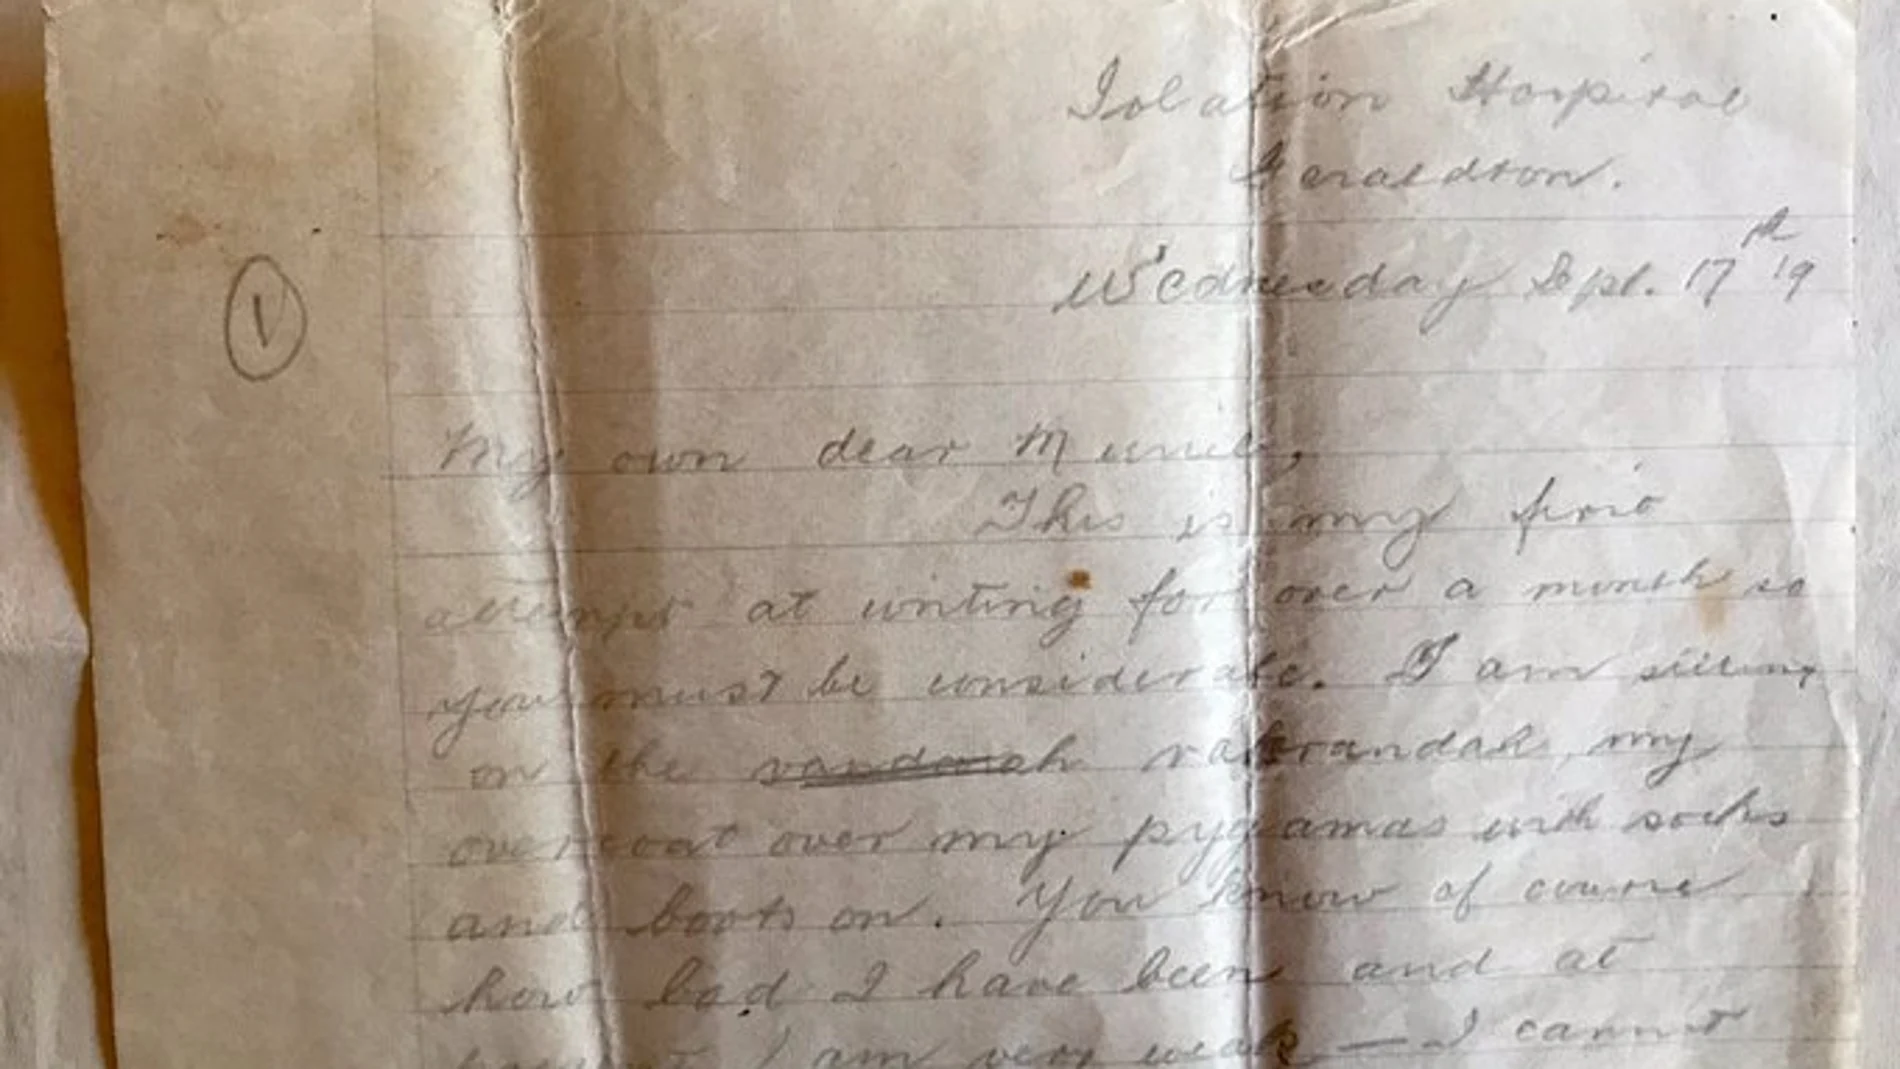 Isolation Hospital
Geraldton.
Wednesday Sept. 17th 19
1
My own dear
This is my first
attempt at writing for over a month so
you must be considerate. I am sitting
on the verandah my
overcoat over my pygamas with socks
and boots on. You know of course
how bad I have been and at
I am very weak — I cannot